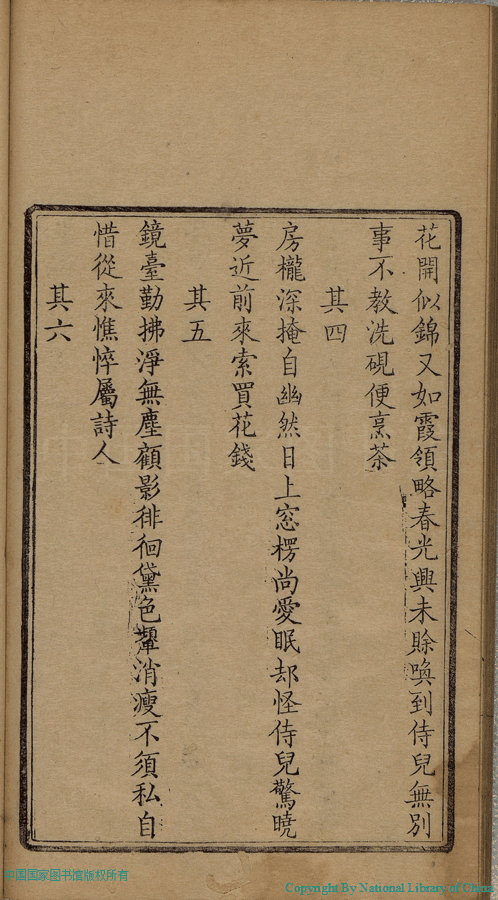 花開似錦又如霞領略春光興未賖喚到侍兒無別
事不教洗硯便烹茶
其四
房櫳深掩自幽然日上窓楞尚愛眠却怪侍兒驚曉
夢近前來索買花錢
其五
鏡臺勤拂淨無塵顧影徘徊黛色顰消瘦不須私自
惜從來憔悴屬詩人
其六
中国国家图书馆版权所有
Copyright By National Library of China